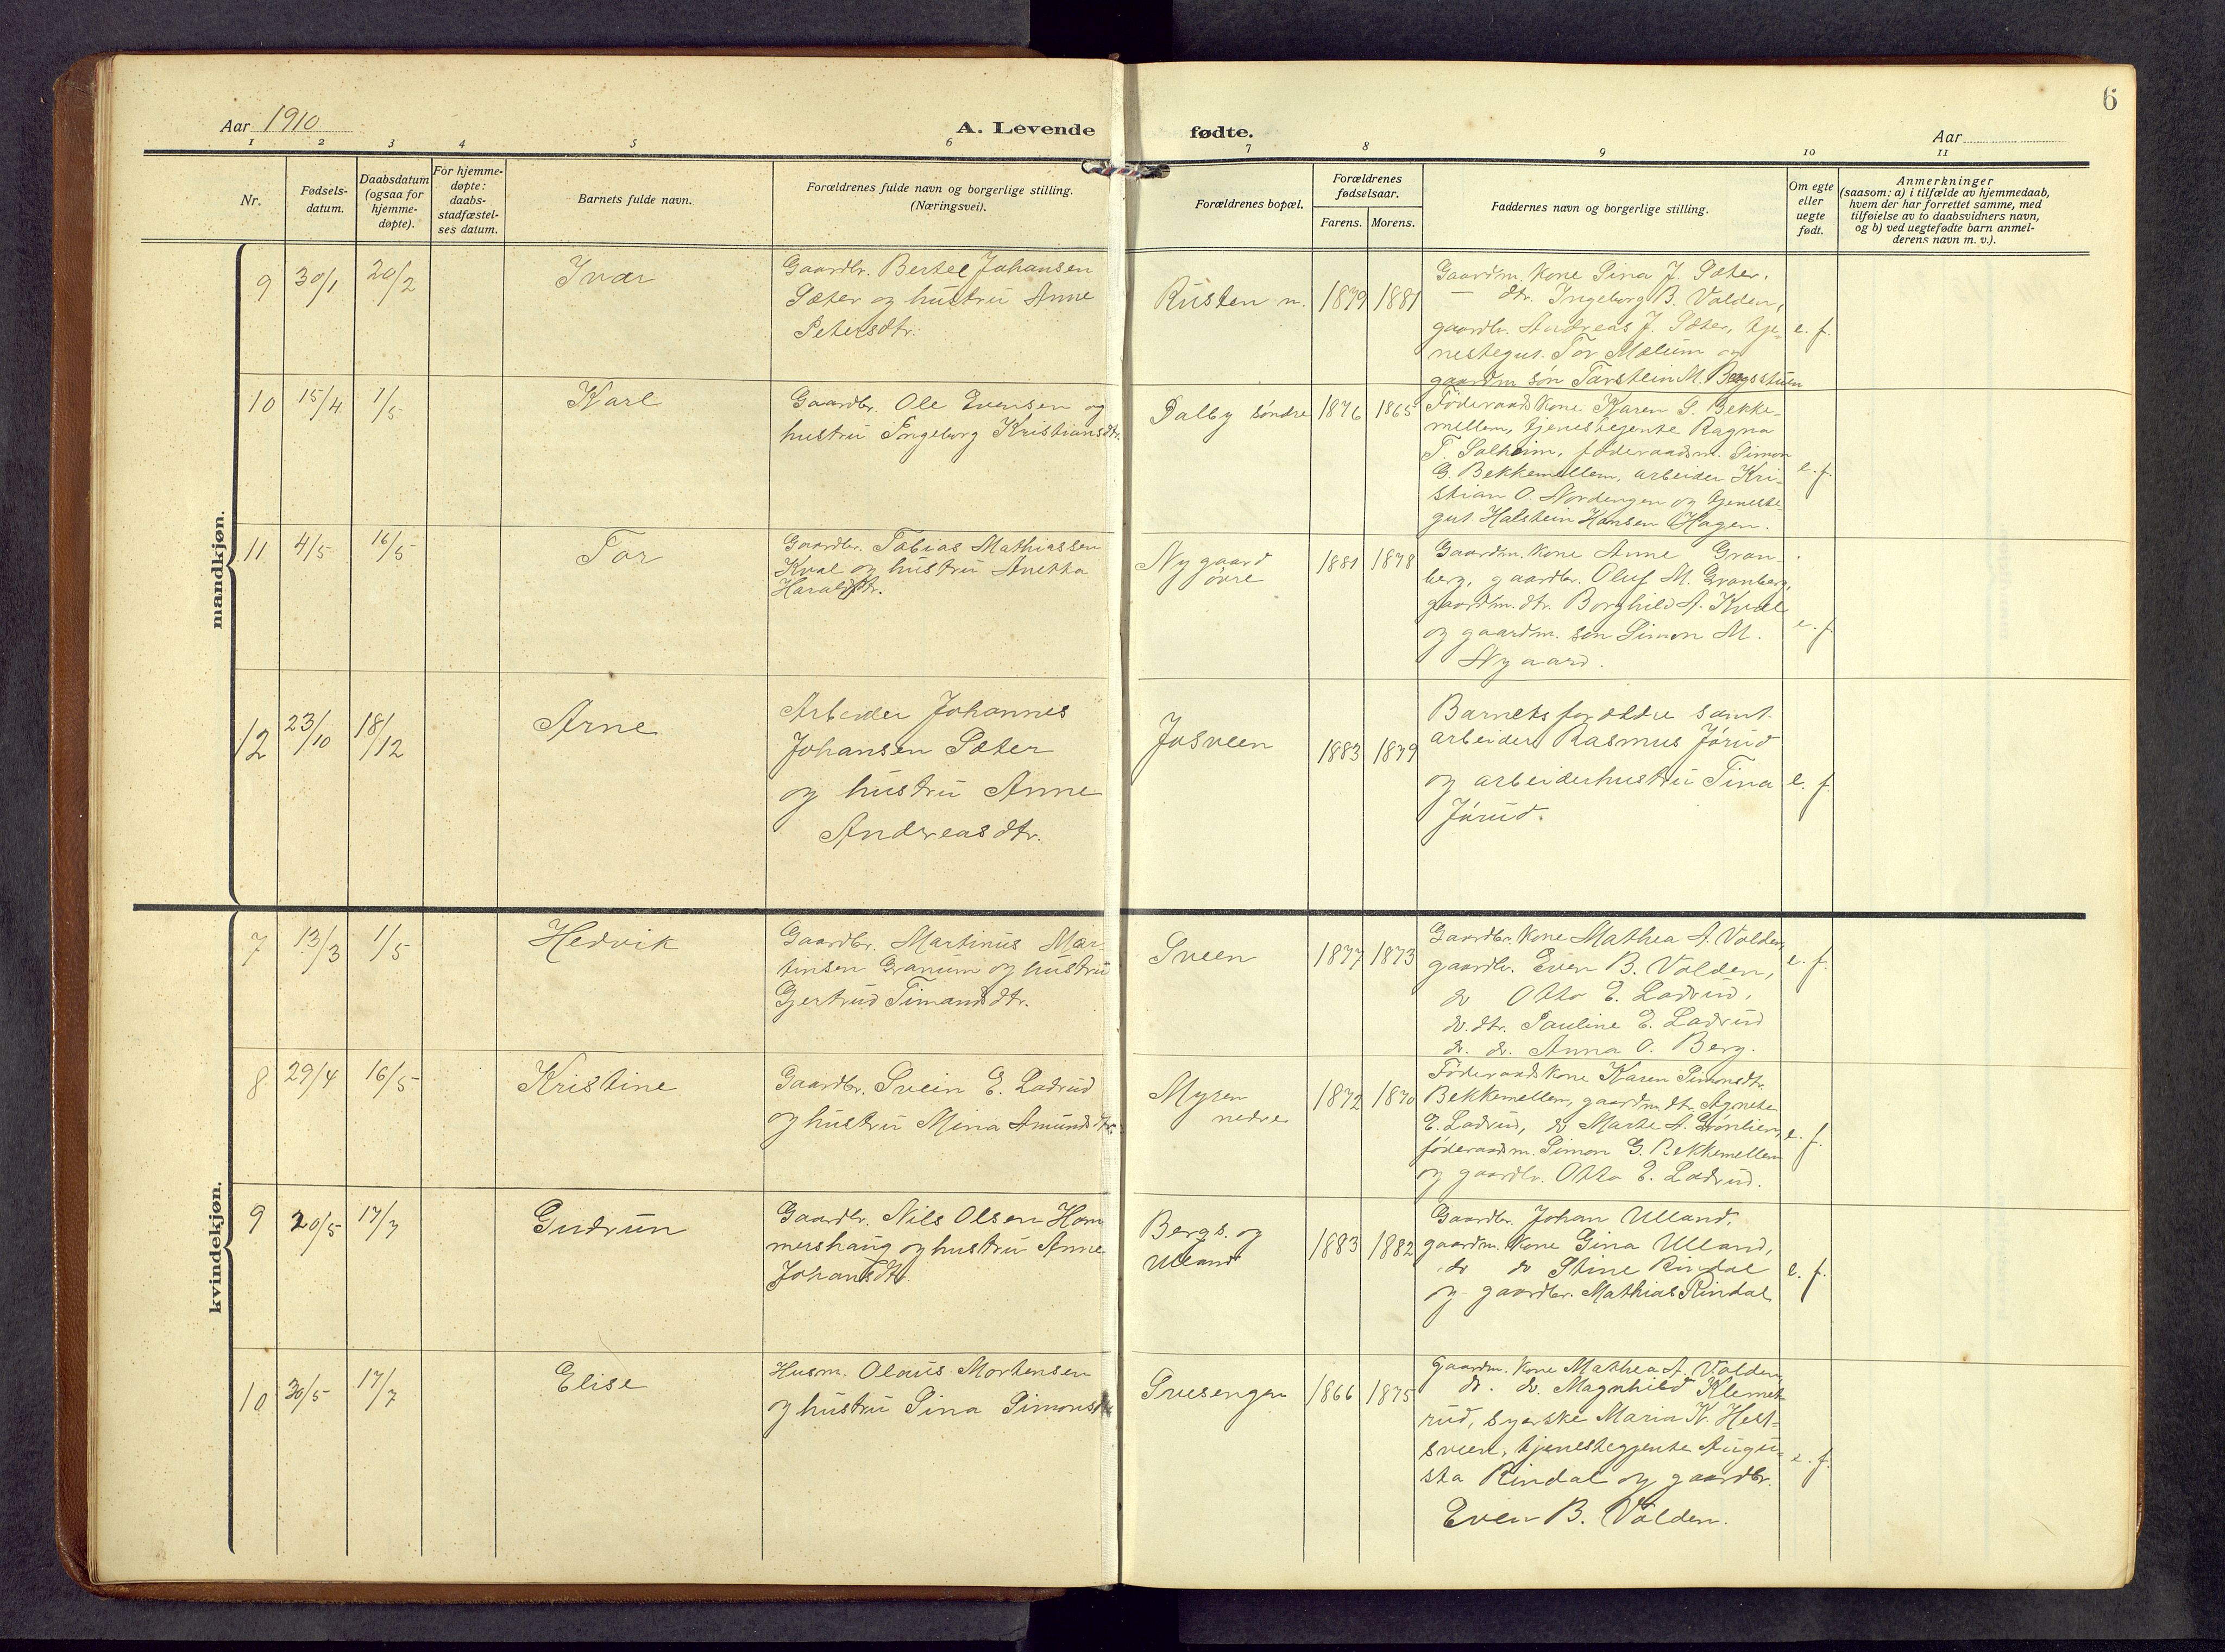 6
Aar 1910
A. Levende
fødte.
Aar
1 2 3 4 5 6 7 8 9 10 11
Nr.
Fødsels-
datum.
Daabsdatum
(ogsaa for
hjemme-
døpte).
For hjemme-
døpte:
daabs-
stadfæstel-
ses datum.
Barnets fulde navn.
Forældrenes fulde navn og borgerlige stilling.
(Næringsvei).
Forældrenes bopæl.
Forældrenes
fødselsaar.
Farens. Morens.
Faddernes navn og borgerlige stilling.
Om egte
eller
uegte
født.
Anmerkninger
(saasom: a) i tilfælde av hjemmedaab,
hvem der har forrettet samme, med
tilføielse av to daabsvidners navn,
og b) ved uegtefødte barn anmel-
derens navn m. v.).
mandkjøn.
9
30/1
20/2
Ivar
Gaardbr. Bertel Johansen
Sæter og hustru Anne
Petersdtr.
Rusten n.
1879
1881
Gaardm. kone Sina J. Sæter,
— dtr. Ingeborg B. Volden,
gaardbr. Andreas J. Sæter, tje-
nestegut. Tor Mælum og
gaardm søn Torstein M. Bergsstuen
e. f.
10
15/4
1/5
Karl
Gaardbr. Ole Evensen og
hustru Ingeborg Kristiansdtr.
Dalby søndre
1876
1865
Føderaads kone Karen S. Bekke-
mellem, tjenestejente Ragna
T. Solheim, føderaadsm. Simon
G. Bekkemellem, arbeider Kri-
stian O. Nordengen og tjeneste
gut. Halstein Hansen Hagen.
e. f.
11
4/5
16/5
Tor
Gaardbr. Tobias Mathiassen
Kval og hustru Anetta
Haraldsdtr.
Nygaard
øvre
1881
1878
Gaardm. kone Anne Gran-
berg, gaardbr. Oluf M. Granberg,
gaardm. dtr. Borghild A. Kval
og gaardm. søn Simon M.
Nygaard.
e. f.
12
23/10
18/12
Arne
Arbeider Johannes
Johansen Sæter
og hustru Anne
Andreasdtr.
Josveen
1883
1879
Barnets forældre samt
arbeider Rasmus Jørud
og arbeiderhustru Tina
Jørud.
e. f.
kvindekjøn.
7
13/3
1/5
Hedvik
Gaardbr. Martinus Mar-
tinsen Granum og hustru
Gjertrud Timandsdtr.
Sveen
1877
1873
Gaardbr. kone Mathea A. Volden,
gaardbr. Even B. Volden,
do Otto E. Ladrud,
do. dtr. Pauline E. Ladrud
do. do. Anna O. Berg.
e. f.
8
29/4
16/5
Kristine
Gaardbr. Svein E. Ladrud
og hustru Mina Amundsdtr.
Myren
nedre
1872
1870
Føderaads kone Karen Simonsdtr.
Bekkemellem, gaardm. dtr. Agnete
E. Ladrud, do Marte A. Grønlien,
føderaadm. Simon G. Bekkemellem
og gaardbr. Otto E. Ladrud.
e. f.
9
20/5
17/7
Gudrun
Gaardbr. Nils Olsen Hom
mershaug og hustru Anne
Johansdtr.
Bergs. og
Ulland
1883
1882
Gaardbr. Johan Ulland,
gaardm. kone Gina Ulland,
do do Stine Rindal
og gaardbr. Mathias Rindal
e. f.
10
30/5
17/7
Elise
Husm. Olaus Mortensen
og hustru Sina Simonsdtr
1866
1875
Gaardm. kone Mathea A. Volden
do. do. Magnhild Klemet-
rud, syerske Maria K. Hest-
sveen, tjenestegjente Augu-
sta Rindal og gaardbr.
Even B. Volden.
e. f.